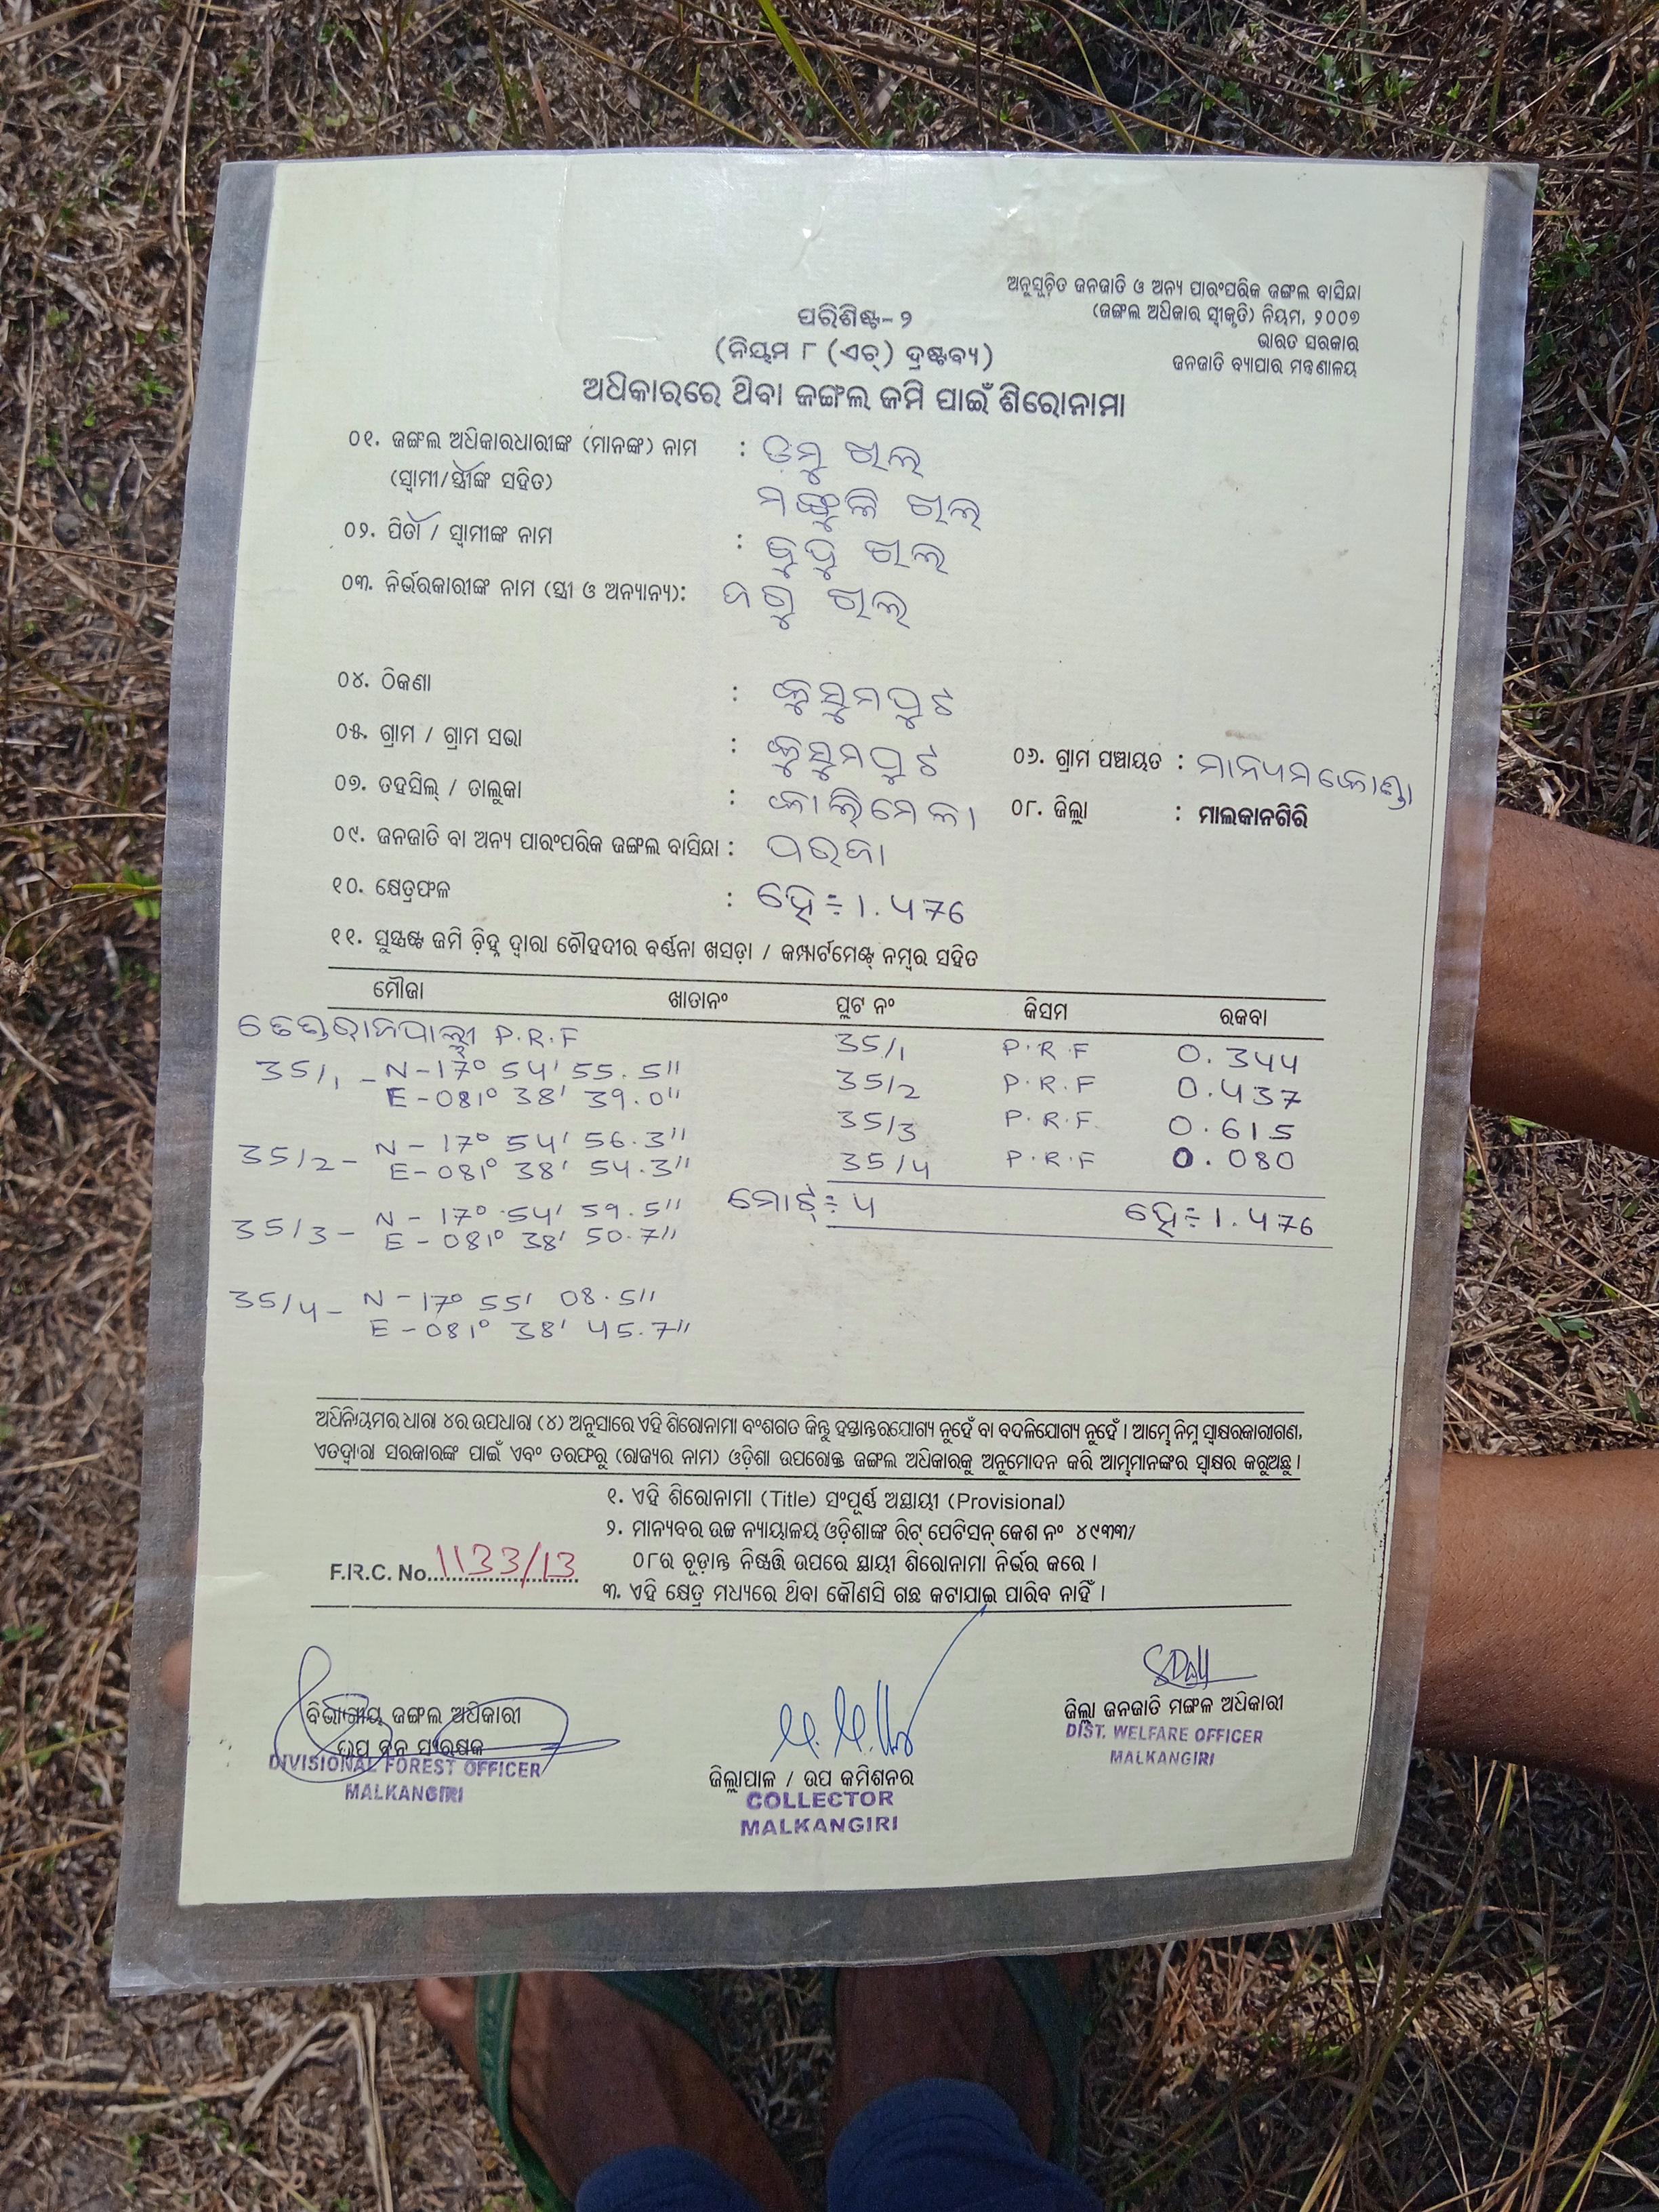 ଅନୁସୂଚିତ ଜନଜାତି ଓ ଅନ୍ୟ ପାରଂପରିକ ଜଙ୍ଗଲ ବାସିନ୍ଦା
(ଜଙ୍ଗଲ ଅଧିକାର ସ୍ୱୀକୃତି) ନିୟମ, ୨୦୦୭
ଭାରତ ସରକାର
ଜନଜାତି ବ୍ୟାପାର ମନ୍ତ୍ରଣାଳୟ
ପରିଶିଷ୍ଟ-୨
(ନିୟମ ୮ (ଏଚ୍) ଦ୍ରଷ୍ଟବ୍ୟ)
ଅଧିକାରରେ ଥିବା ଜଙ୍ଗଲ ଜମି ପାଇଁ ଶିରୋନାମା
୦୧. ଜଙ୍ଗଲ ଅଧିକାରଧାରୀଙ୍କ (ମାନଙ୍କ) ନାମ : ଡମୁ ଖିଲ
(ସ୍ୱାମୀ/ସ୍ତ୍ରୀଙ୍କ ସହିତ) ମଙ୍ଗୁଳି ଖିଲ
୦୨. ପିତା / ସ୍ୱାମୀଙ୍କ ନାମ : ବୁଦୁ ଖିଲ
୦୩. ନିର୍ଭରକାରୀଙ୍କ ନାମ (ସ୍ତ୍ରୀ ଓ ଅନ୍ୟାନ୍ୟ): ଖିଲ
୦୪. ଠିକଣା : କୁସୁମପୁଟ
୦୫. ଗ୍ରାମ / ଗ୍ରାମ ସଭା : କୁସୁମପୁଟ ୦୬. ଗ୍ରାମ ପଞ୍ଚାୟତ : ମାନ୍ୟମକୋଣ୍ଡା
୦୭. ତହସିଲ୍ / ତାଲୁକା : କାଲିମେଳା ୦୮. ଜିଲ୍ଲା : ମାଲକାନଗିରି
୦୯. ଜନଜାତି ବା ଅନ୍ୟ ପାରଂପରିକ ଜଙ୍ଗଲ ବାସିନ୍ଦା : ପରଜା
୧୦. କ୍ଷେତ୍ରଫଳ : ହେ÷1.476
୧୧. ସୁସ୍ପଷ୍ଟ ଜମି ଚିହ୍ନ ଦ୍ୱାରା ଚୌହଦୀର ବର୍ଣ୍ଣନା ଖସଡ଼ା / କମ୍ପାର୍ଟମେଣ୍ଟ୍ ନମ୍ବର ସହିତ
ମୌଜା ଖାତାନଂ ପ୍ଲଟ ନଂ କିସମ ରକବା
P.R.F 35/1 P.R.F 0.344
35/1 - N-17° 54' 55.5" 35/2 P.R.F 0.437
E-081° 38' 39.0" 35/3 P.R.F. 0.615
35/2 - N-17° 54' 56.3" 35/4 P.R.F 0.080
E-081° 38' 54.3"
ମୋଟ୍÷ 4 ହେ÷1.476
35/3 - N-17° 54' 59.5"
E-081° 38' 50.7"
35/4 - N-17° 55' 08.5"
E-081° 38' 45.7"
ଅଧିନିୟମର ଧାରା ୪ର ଉପଧାରା (୪) ଅନୁସାରେ ଏହି ଶିରୋନାମା ବଂଶଗତ କିନ୍ତୁ ହସ୍ତାନ୍ତରଯୋଗ୍ୟ ନୁହେଁ ବା ବଦଳିଯୋଗ୍ୟ ନୁହେଁ । ଆମ୍ଭେ ନିମ୍ନ ସ୍ୱାକ୍ଷରକାରୀଗଣ,
ଏତଦ୍ୱାରା ସରକାରଙ୍କ ପାଇଁ ଏବଂ ତରଫରୁ (ରାଜ୍ୟର ନାମ) ଓଡ଼ିଶା ଉପରୋକ୍ତ ଜଙ୍ଗଲ ଅଧିକାରକୁ ଅନୁମୋଦନ କରି ଆମ୍ଭମାନଙ୍କର ସ୍ୱାକ୍ଷର କରୁଅଛୁ ।
୧. ଏହି ଶିରୋନାମା (Title) ସଂପୂର୍ଣ୍ଣ ଅସ୍ଥାୟୀ (Provisional)
୨. ମାନ୍ୟବର ଉଚ୍ଚ ନ୍ୟାୟାଳୟ ଓଡ଼ିଶାଙ୍କ ରିଟ୍ ପେଟିସନ୍ କେଶ ନଂ ୪୯୩୩/
୦୮ର ଚୂଡ଼ାନ୍ତ ନିଷ୍ପତ୍ତି ଉପରେ ସ୍ଥାୟୀ ଶିରୋନାମା ନିର୍ଭର କରେ ।
F.R.C. No. 1133/13
୩. ଏହି କ୍ଷେତ୍ର ମଧ୍ୟରେ ଥିବା କୌଣସି ଗଛ କଟାଯାଇ ପାରିବ ନାହିଁ ।
ବିଭାଗୀୟ ଜଙ୍ଗଲ ଅଧିକାରୀ
ଉପ ବନ ସଂରକ୍ଷକ
DIVISIONAL FOREST OFFICER
MALKANGIRI
ଜିଲ୍ଲାପାଳ / ଉପ କମିଶନର
COLLECTOR
MALKANGIRI
ଜିଲ୍ଲା ଜନଜାତି ମଙ୍ଗଳ ଅଧିକାରୀ
DIST. WELFARE OFFICER
MALKANGIRI